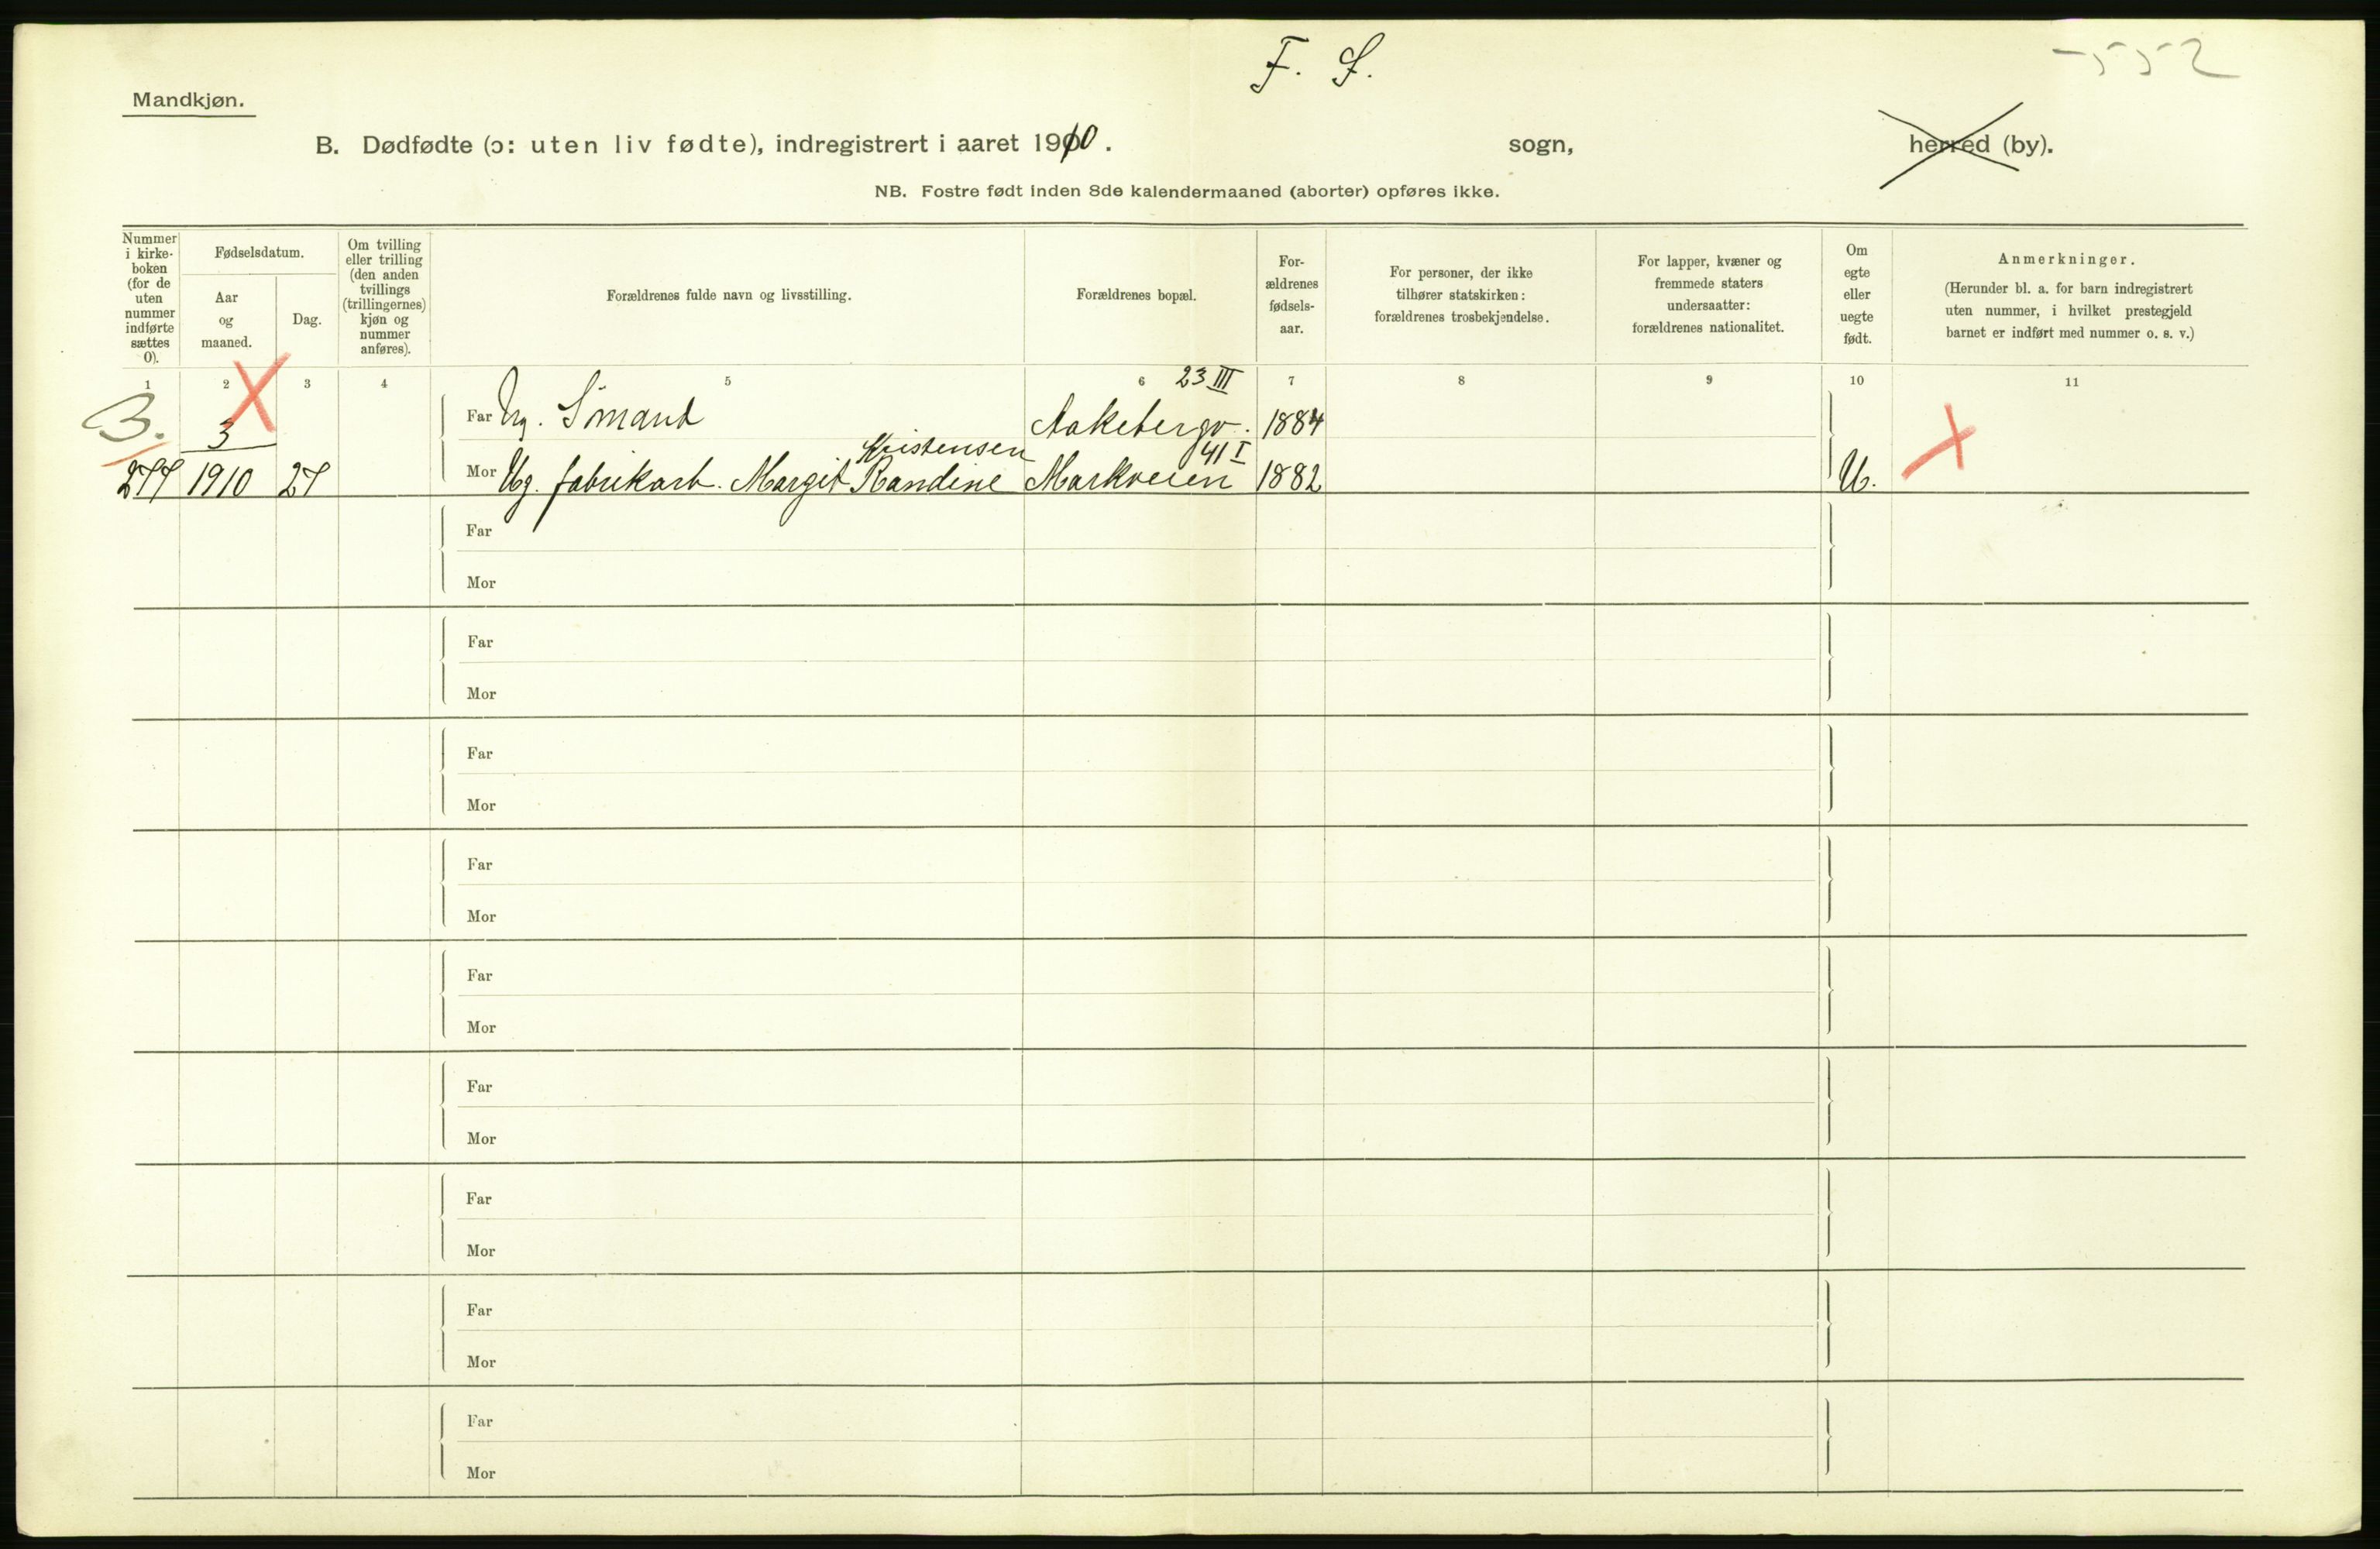 F. S.
552
Mandkjøn.
B. Dødfødte (ɔ: uten liv fødte), indregistrert i aaret 1910. sogn, herred (by).
NB. Fostre født inden 8de kalendermaaned (aborter) opføres ikke.
Nummer i kirke-boken (for de uten nummer indførte sættes 0).
Fødselsdatum.
Aar og maaned.
Dag.
Om tvilling eller trilling (den anden tvillings (trillingernes) kjøn og nummer anføres).
Forældrenes fulde navn og livsstilling.
Forældrenes bopæl.
For-ældrenes fødsels-aar.
For personer, der ikke tilhører statskirken: forældrenes trosbekjendelse.
For lapper, kvæner og fremmede staters undersaatter: forældrenes nationalitet.
Om egte eller uegte født.
Anmerkninger.
(Herunder bl. a. for barn indregistrert uten nummer, i hvilket prestegjeld barnet er indført med nummer o. s. v.)
1 2 3 4 5 6 7 8 9 10 11
23 III
B. 3 Far Ug. Smand Aakebergv. 1884
Kristensen 41 I
277 1910 27 Mor Ug. fabrikarb. Margit Randine Markveien 1882 U.
Far
Mor
Far
Mor
Far
Mor
Far
Mor
Far
Mor
Far
Mor
Far
Mor
Far
Mor
Far
Mor